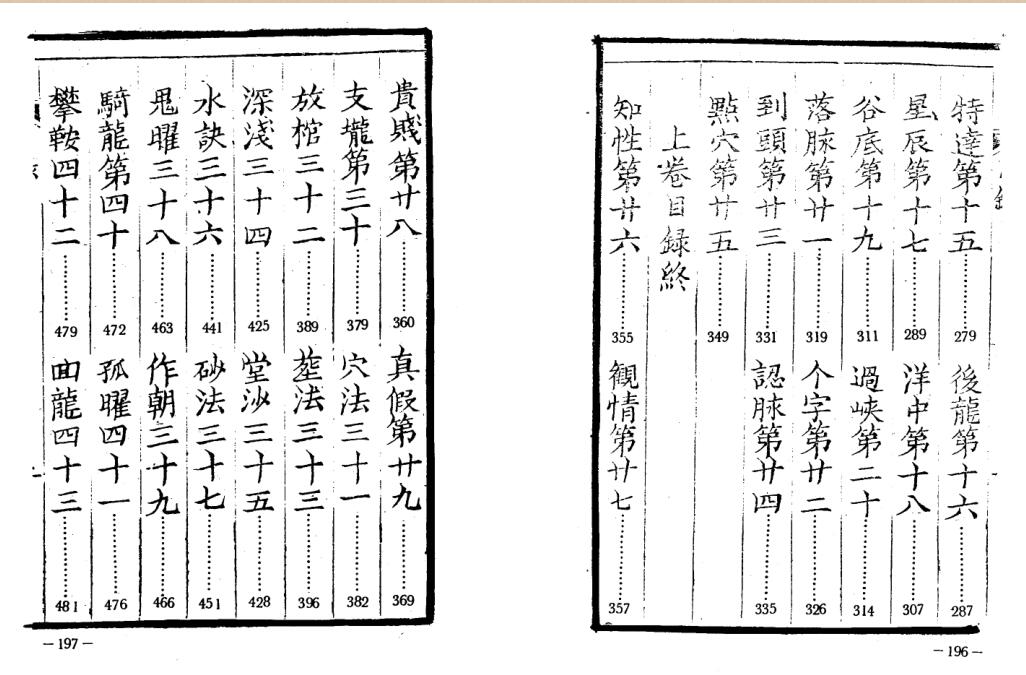 特達第十五………279
後龍第十六………287
星辰第十七………289
洋中第十八………307
谷底第十九………311
過峽第二十………314
落脉第廿一………319
个字第廿二………326
到頭第廿三………331
認脉第廿四………335
點穴第廿五………349
上卷目録終
知性第廿六………355
觀情第廿七………357
—196—
貴賤第廿八………360
真假第廿九………369
支壠第三十………379
穴法三十一………382
放棺三十二………389
葬法三十三………396
深淺三十四………425
堂沙三十五………428
水訣三十六………441
砂法三十七………451
鬼曜三十八………463
作朝三十九………466
騎龍第四十………472
孤曜四十一………476
攀鞍四十二………479
回龍四十三………481
—197—